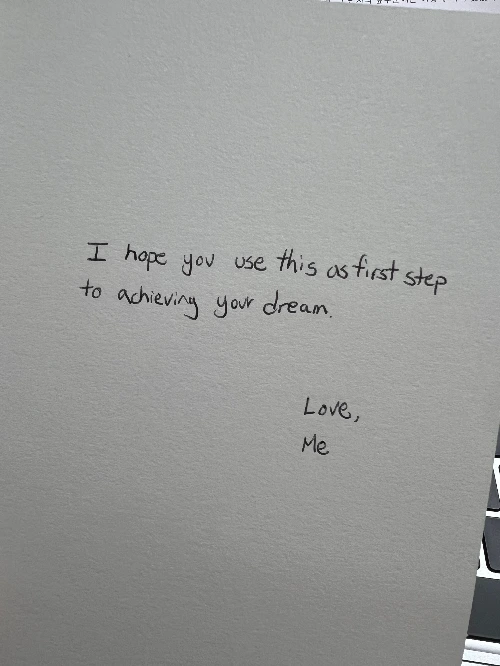 I hope you use this as first step
to achieving your dream.
Love,
Me